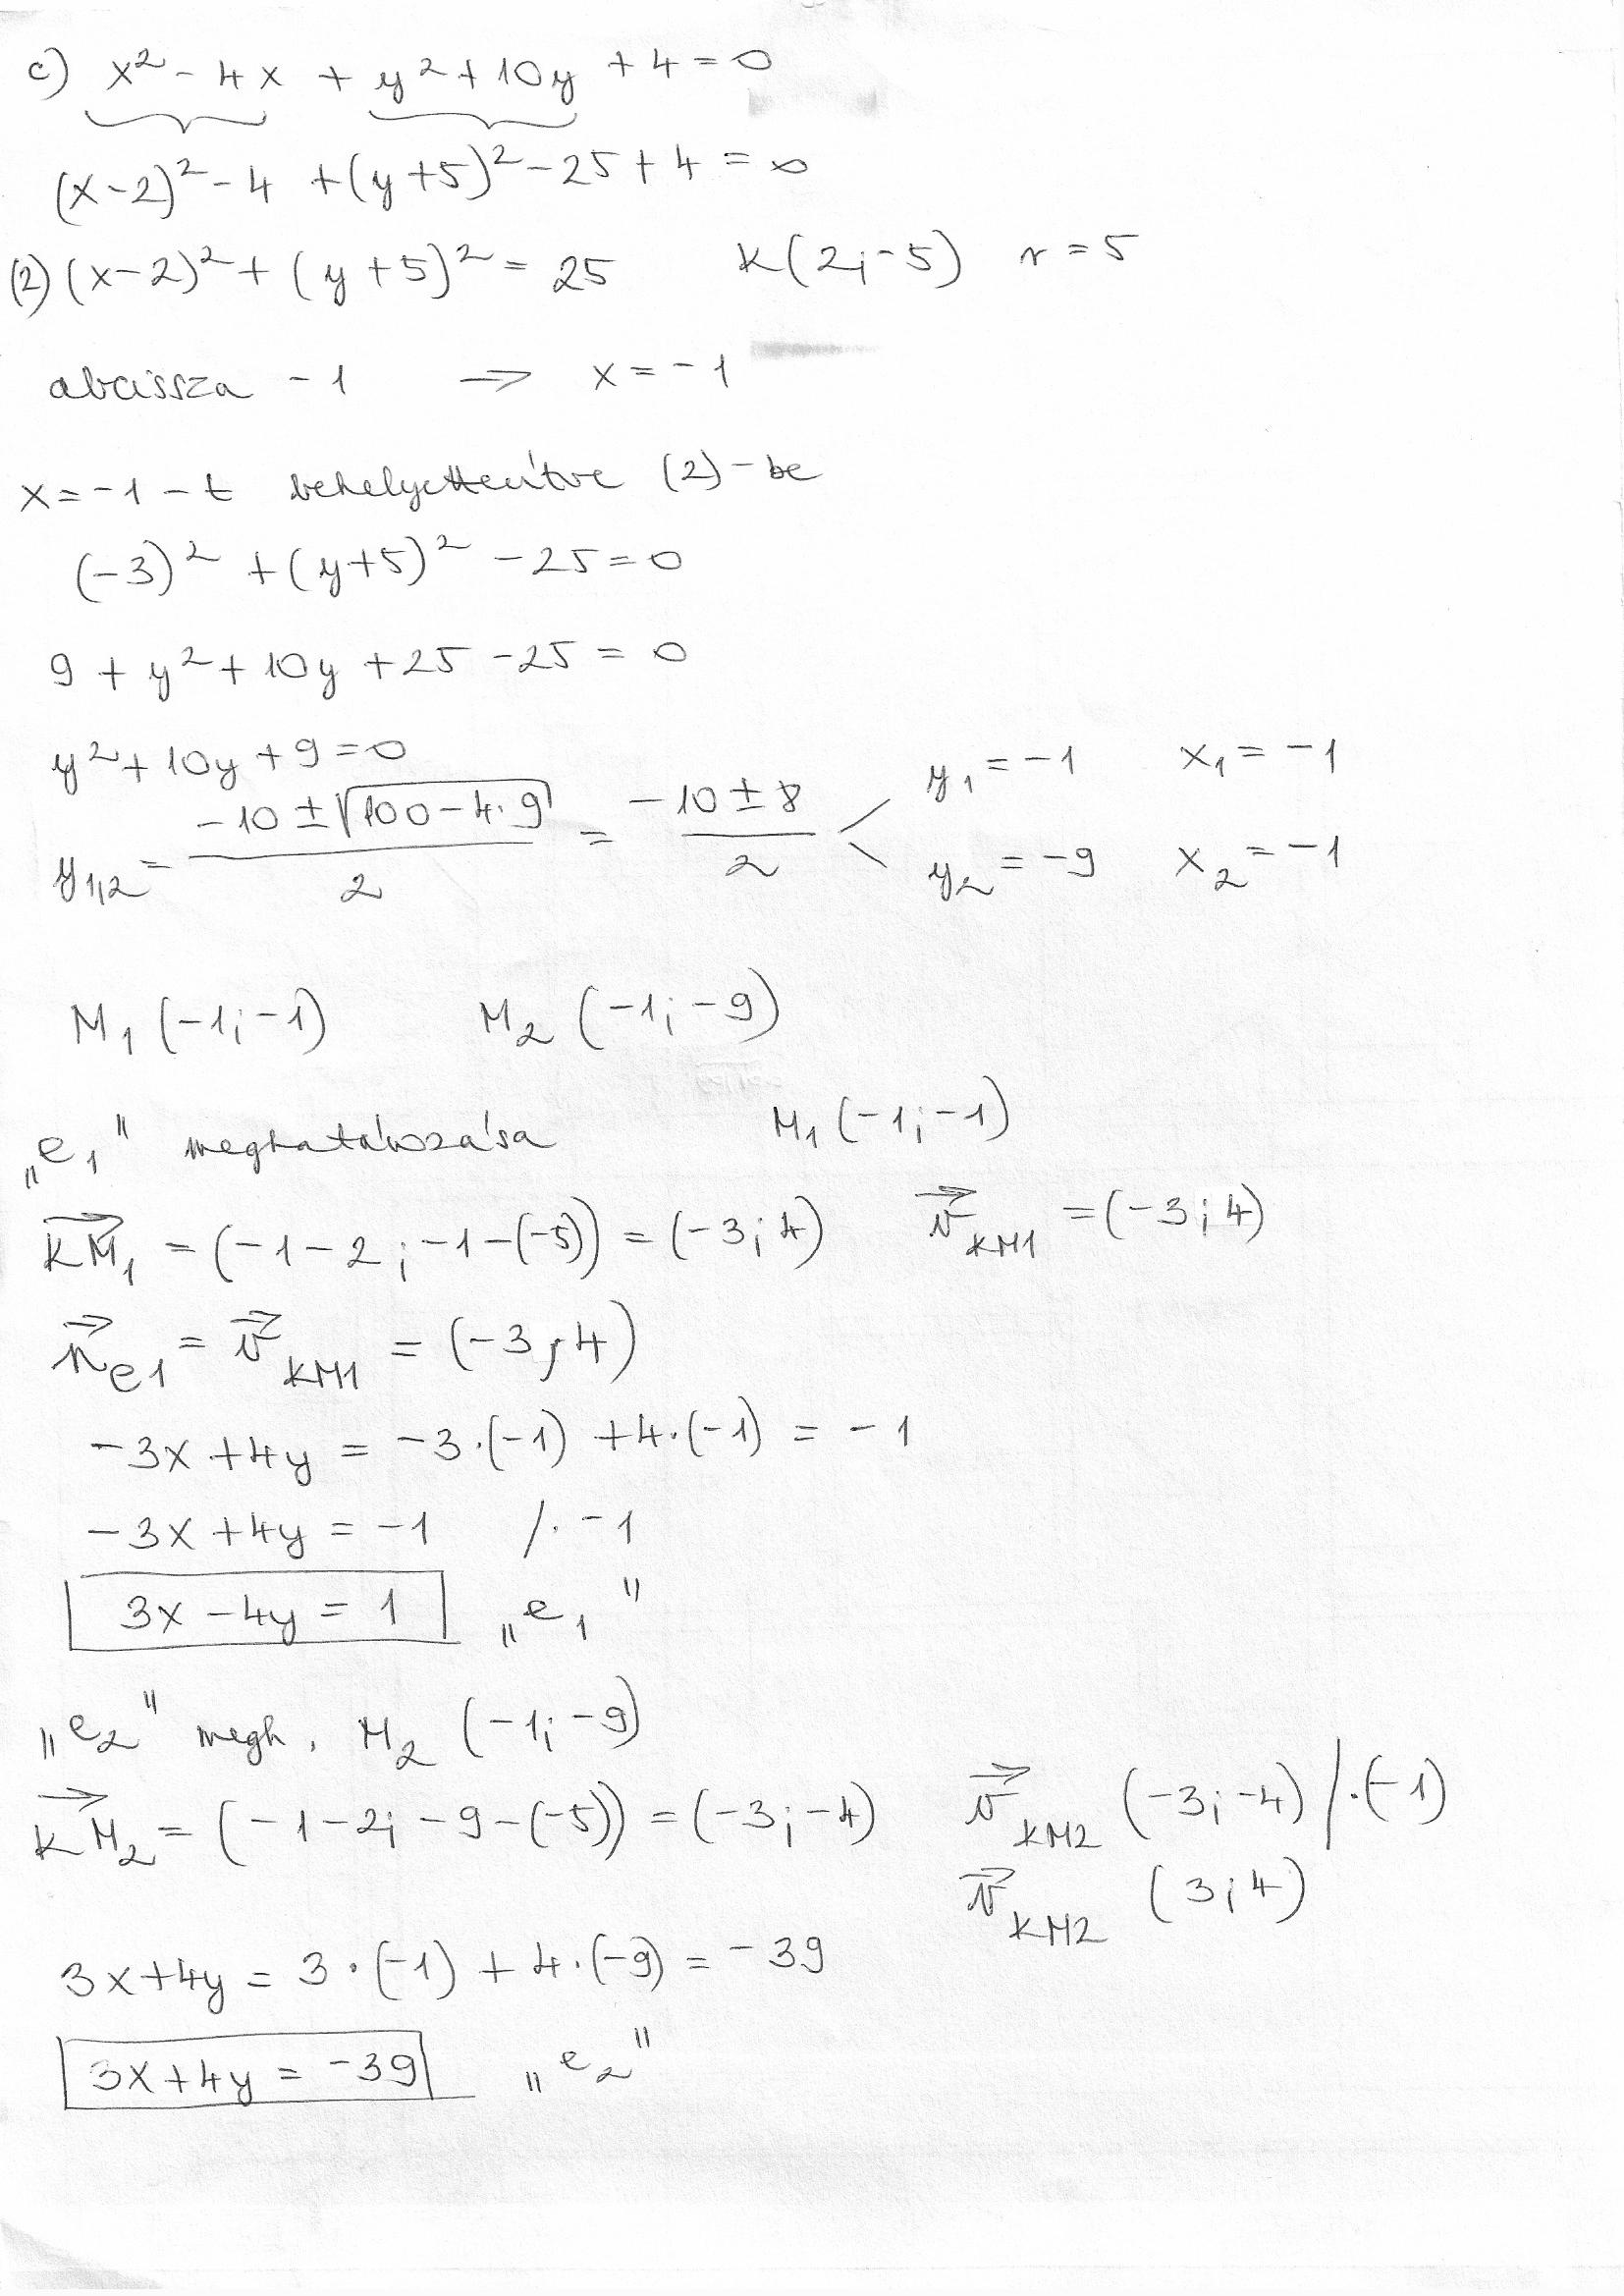 c) x² - 4x + y² + 10y + 4 = 0
(x-2)² - 4 + (y+5)² - 25 + 4 = 0
(2) (x-2)² + (y+5)² = 25 K(2;-5) r = 5
abcissza -1 ⇒ x = -1
x = -1 -t behelyettesítve (2)-be
(-3)² + (y+5)² - 25 = 0
9 + y² + 10y + 25 - 25 = 0
y² + 10y + 9 = 0
y₁,₂ = (-10 ± √(100 - 4·9))/2 = (-10 ± 8)/2 < y₁ = -1 x₁ = -1
y₂ = -9 x₂ = -1
M₁ (-1;-1) M₂ (-1;-9)
„e₁" meghatározása M₁ (-1;-1)
→KM₁ = (-1-2; -1-(-5)) = (-3;4) →v KM1 = (-3;4)
→n e1 = →v KM1 = (-3;4)
-3x + 4y = -3·(-1) + 4·(-1) = -1
-3x + 4y = -1 /· -1
3x - 4y = 1 „e₁"
„e₂" megh. M₂ (-1;-9)
→KM₂ = (-1-2; -9-(-5)) = (-3;-4) →v KM2 (-3;-4) /·(-1)
→v KM2 (3;4)
3x + 4y = 3·(-1) + 4·(-9) = -39
3x + 4y = -39 „e₂"